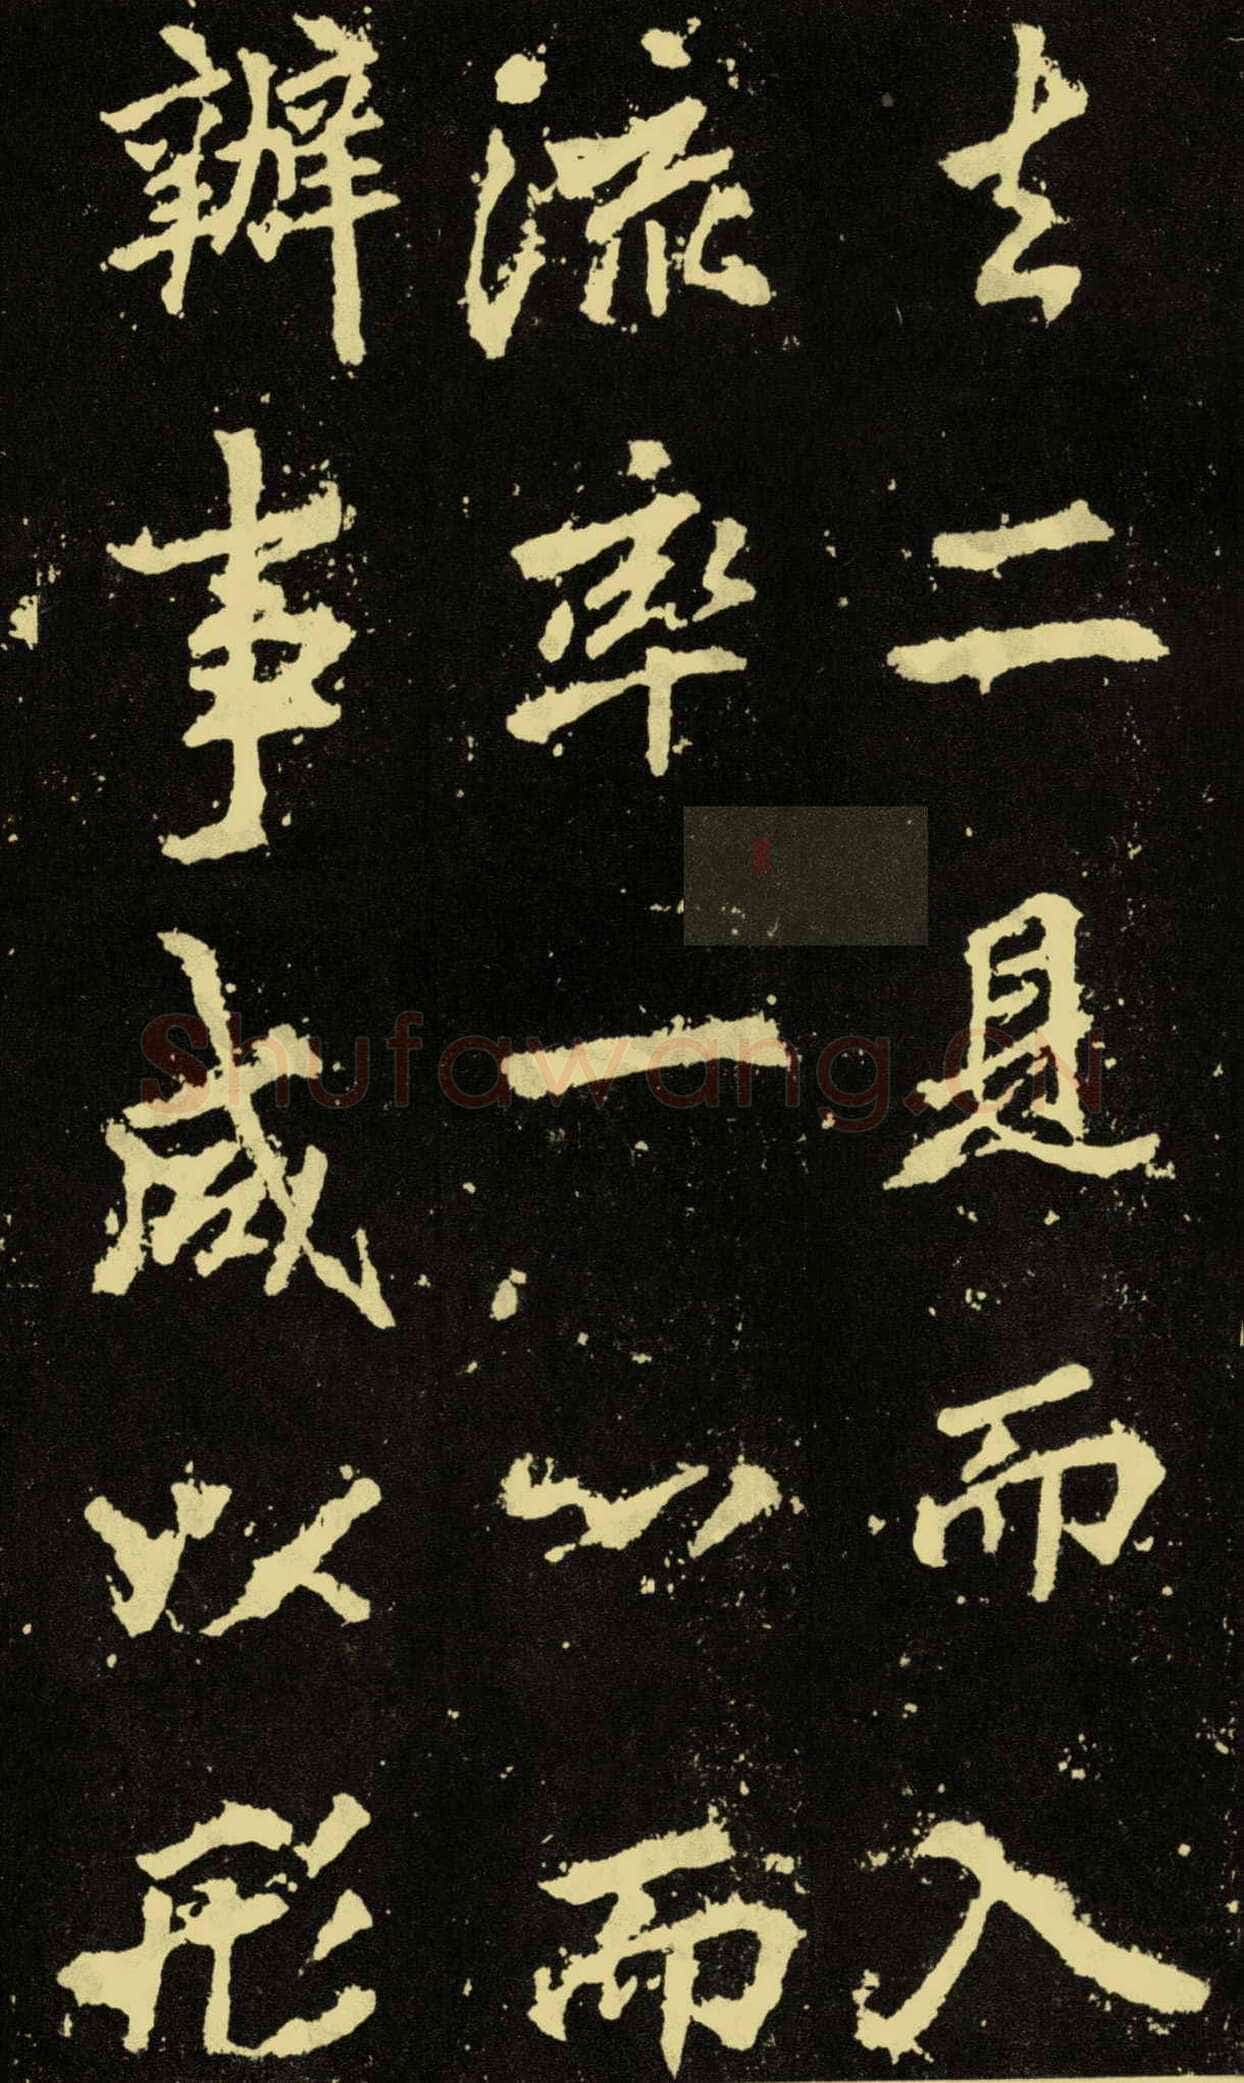 去二見而入
流率一心而
辦事咸以形
Shufawang.CN